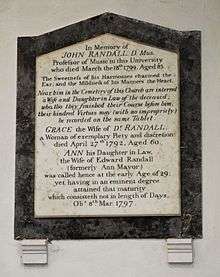 In Memory of
JOHN RANDALL, D. Mus.
Professor of Music in this University
who died March the 18th 1799. Aged 83.
The Sweetness of his Harmonies charmed the
Ear; and the Mildness of his Manners the Heart.
Near him in the Cemetery of this Church are interred
a Wife and Daughter in Law of the deceased;
who, tho' they finished their Course before him,
their kindred Virtues may (with no impropriety)
be recorded on the same Tablet.
GRACE the Wife of Dr. RANDALL,
a Woman of exemplary Piety and discretion
died April 27th 1792. Aged 60.
ANN his Daughter in Law,
the Wife of Edward Randall
(formerly Ann Mayor)
was called hence at the early Age of 29.
yet having in an eminent degree
attained that maturity
which consisteth not in length of Days,
Obt 8th Mar. 1797.